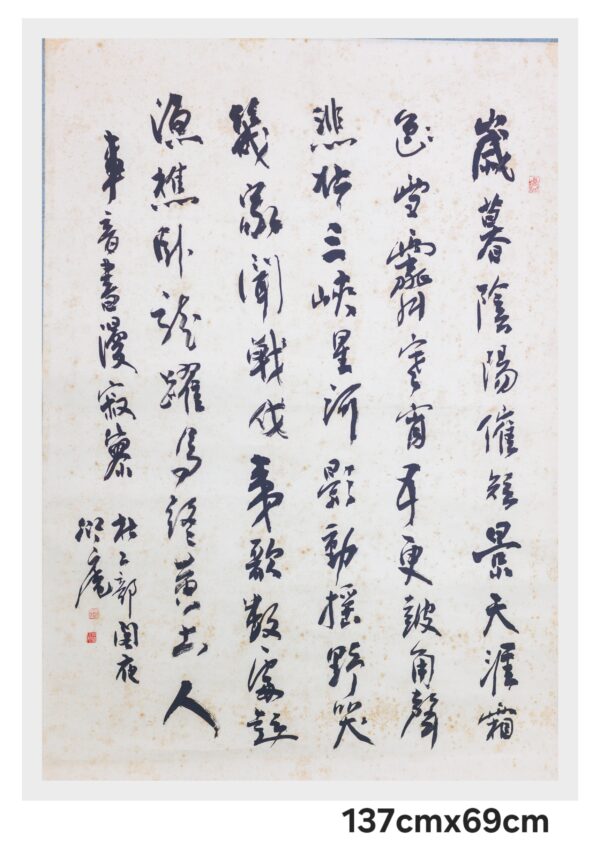 歲暮陰陽催短景天涯霜
雪霽寒宵五更鼓角聲
悲壯三峽星河影動搖野哭
幾家聞戰伐夷歌數處起
漁樵臥龍躍馬終黃土人
事音書漫寂寥
杜工部閣夜
庵
137cmx69cm